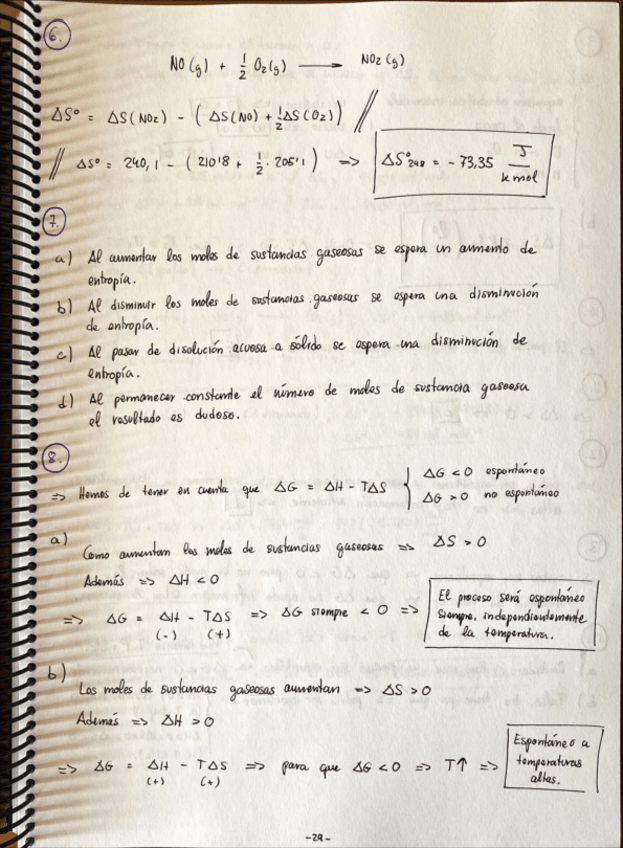 6.
NO(g) + 1/2 O2(g) ⟶ NO2(g)
ΔS° = ΔS(NO2) - (ΔS(NO) + 1/2 ΔS(O2)) //
// ΔS° = 240,1 - (210'8 + 1/2 · 205'1) => ΔS°298 = -73,35 J/kmol
7.
a) Al aumentar los moles de sustancias gaseosas se espera un aumento de
entropía.
b) Al disminuir los moles de sustancias gaseosas se espera una disminución
de entropía.
c) Al pasar de disolución acuosa a sólido se espera una disminución de
entropía.
d) Al permanecer constante el número de moles de sustancia gaseosa
el resultado es dudoso.
8.
=> Hemos de tener en cuenta que ΔG = ΔH - TΔS
ΔG < 0 espontáneo
ΔG > 0 no espontáneo
a) Como aumentan los moles de sustancias gaseosas => ΔS > 0
Además => ΔH < 0
=> ΔG = ΔH - TΔS => ΔG siempre < 0 =>
(-) (+)
El proceso será espontáneo
siempre, independientemente
de la temperatura.
b)
Los moles de sustancias gaseosas aumentan => ΔS > 0
Además => ΔH > 0
=> ΔG = ΔH - TΔS => para que ΔG < 0 => T↑ =>
(+) (+)
Espontáneo a
temperaturas
altas.
-29-